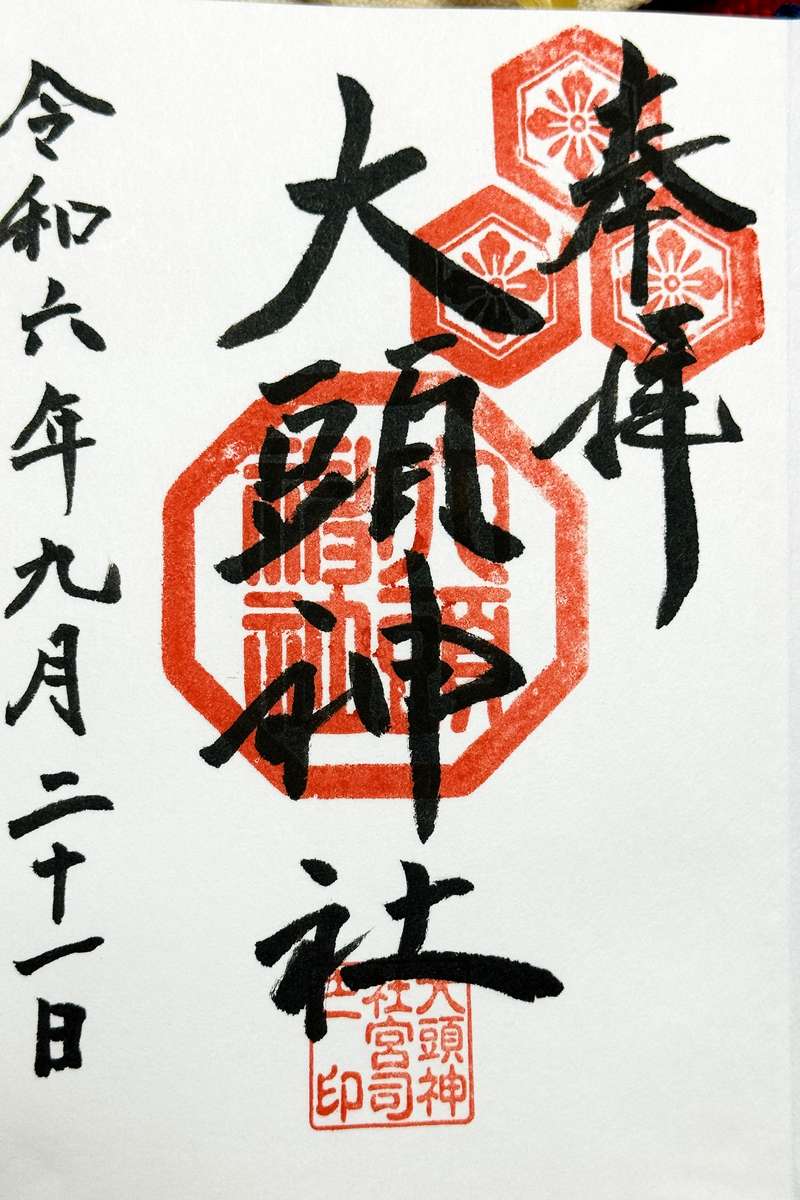 奉拝
大頭神社
令和六年九月二十一日
大頭
神社
大頭神
社宮司
印